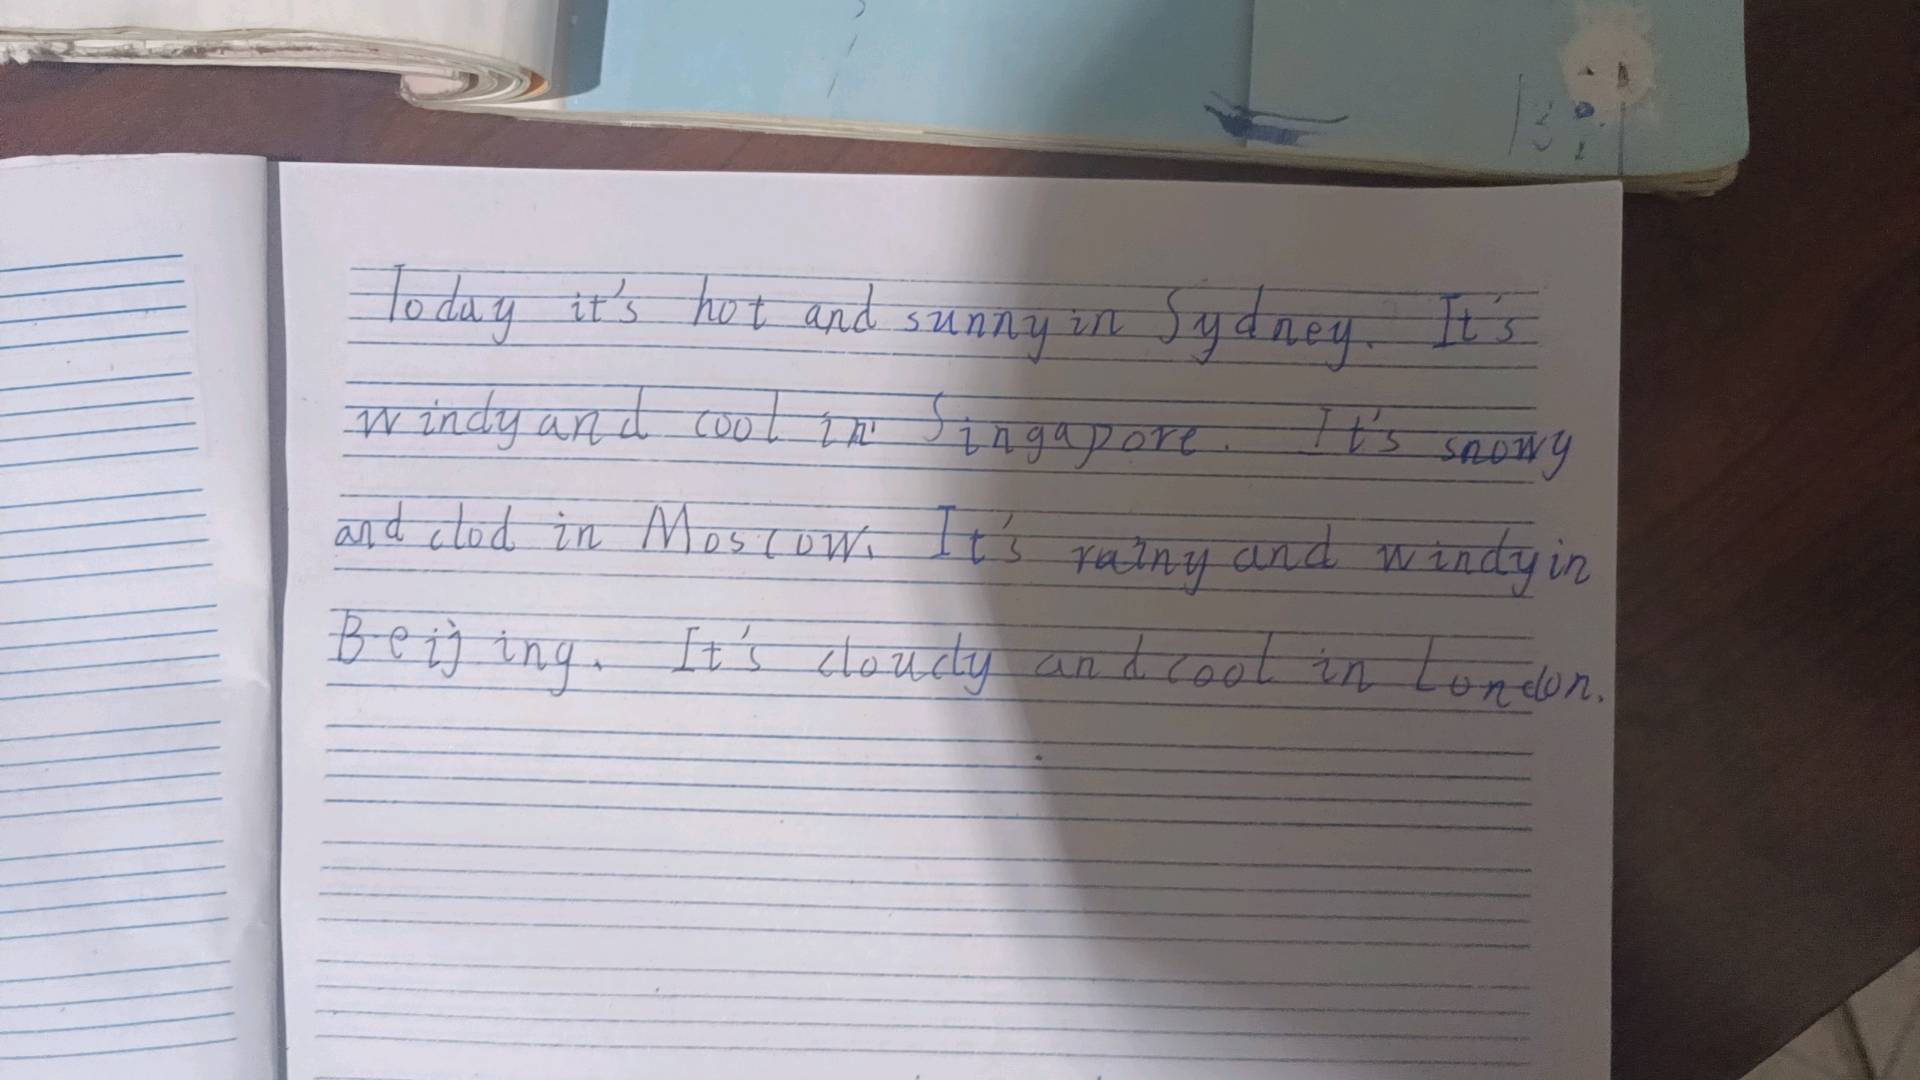 Today it's hot and sunny in Sydney. It's
windy and cool in Singapore. It's snowy
and clod in Moscow. It's rainy and windy in
Beijing. It's cloudy and cool in London.